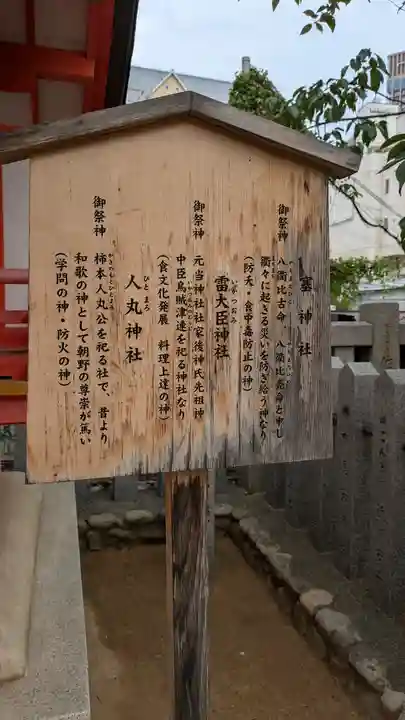 塞神社
御祭神 八衢比古命、八衢比売命と申し
衢々に起きる災いを防ぎ給う神なり
(防災・食中毒防止の神)
雷大臣神社
いかつおみ
御祭神 元当神社社家後神氏先祖神
中臣烏賊津連を祀る神社なり
(食文化発展 料理上達の神)
人丸神社
ひとまろ
御祭神 柿本人丸公を祀る社で、昔より
かきのもとひとまろ
和歌の神として朝野の尊崇が篤い
(学問の神・防火の神)